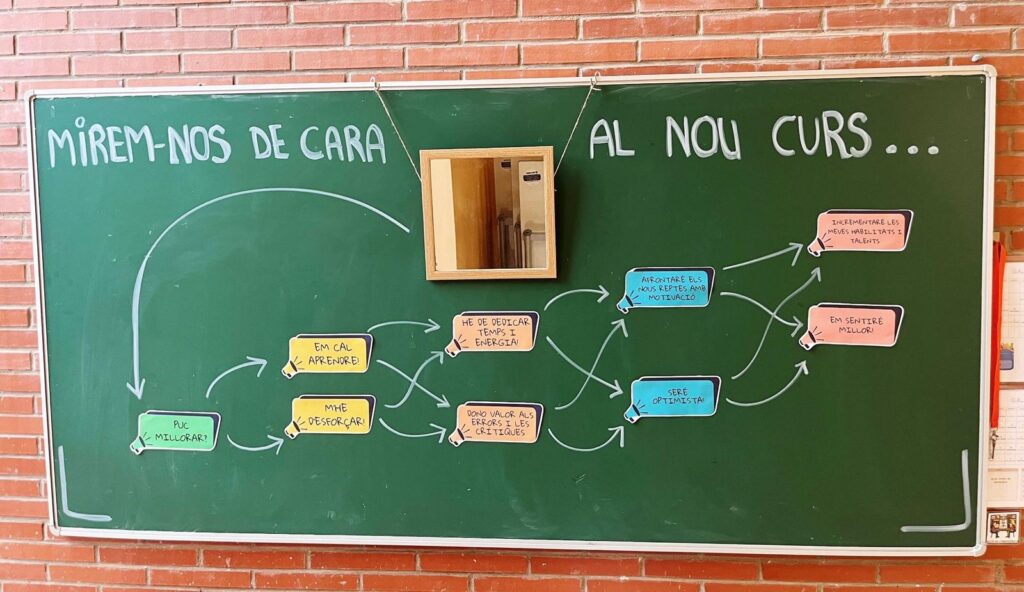 MIREM-NOS DE CARA
AL NOU CURS...
PUC
MILLORAR?
EM CAL
APRENDRE!
M'HE
DESFORÇAR!
HE DE DEDICAR
TEMPS I
ENERGIA!
DONO VALOR ALS
ERRORS I LES
CRÍTIQUES
AFRONTARÉ ELS
NOUS REPTES AMB
MOTIVACIÓ
SERÉ
OPTIMISTA!
INCREMENTARÉ LES
MEVES HABILITATS I
TALENTS
EM SENTIRÉ
MILLOR!